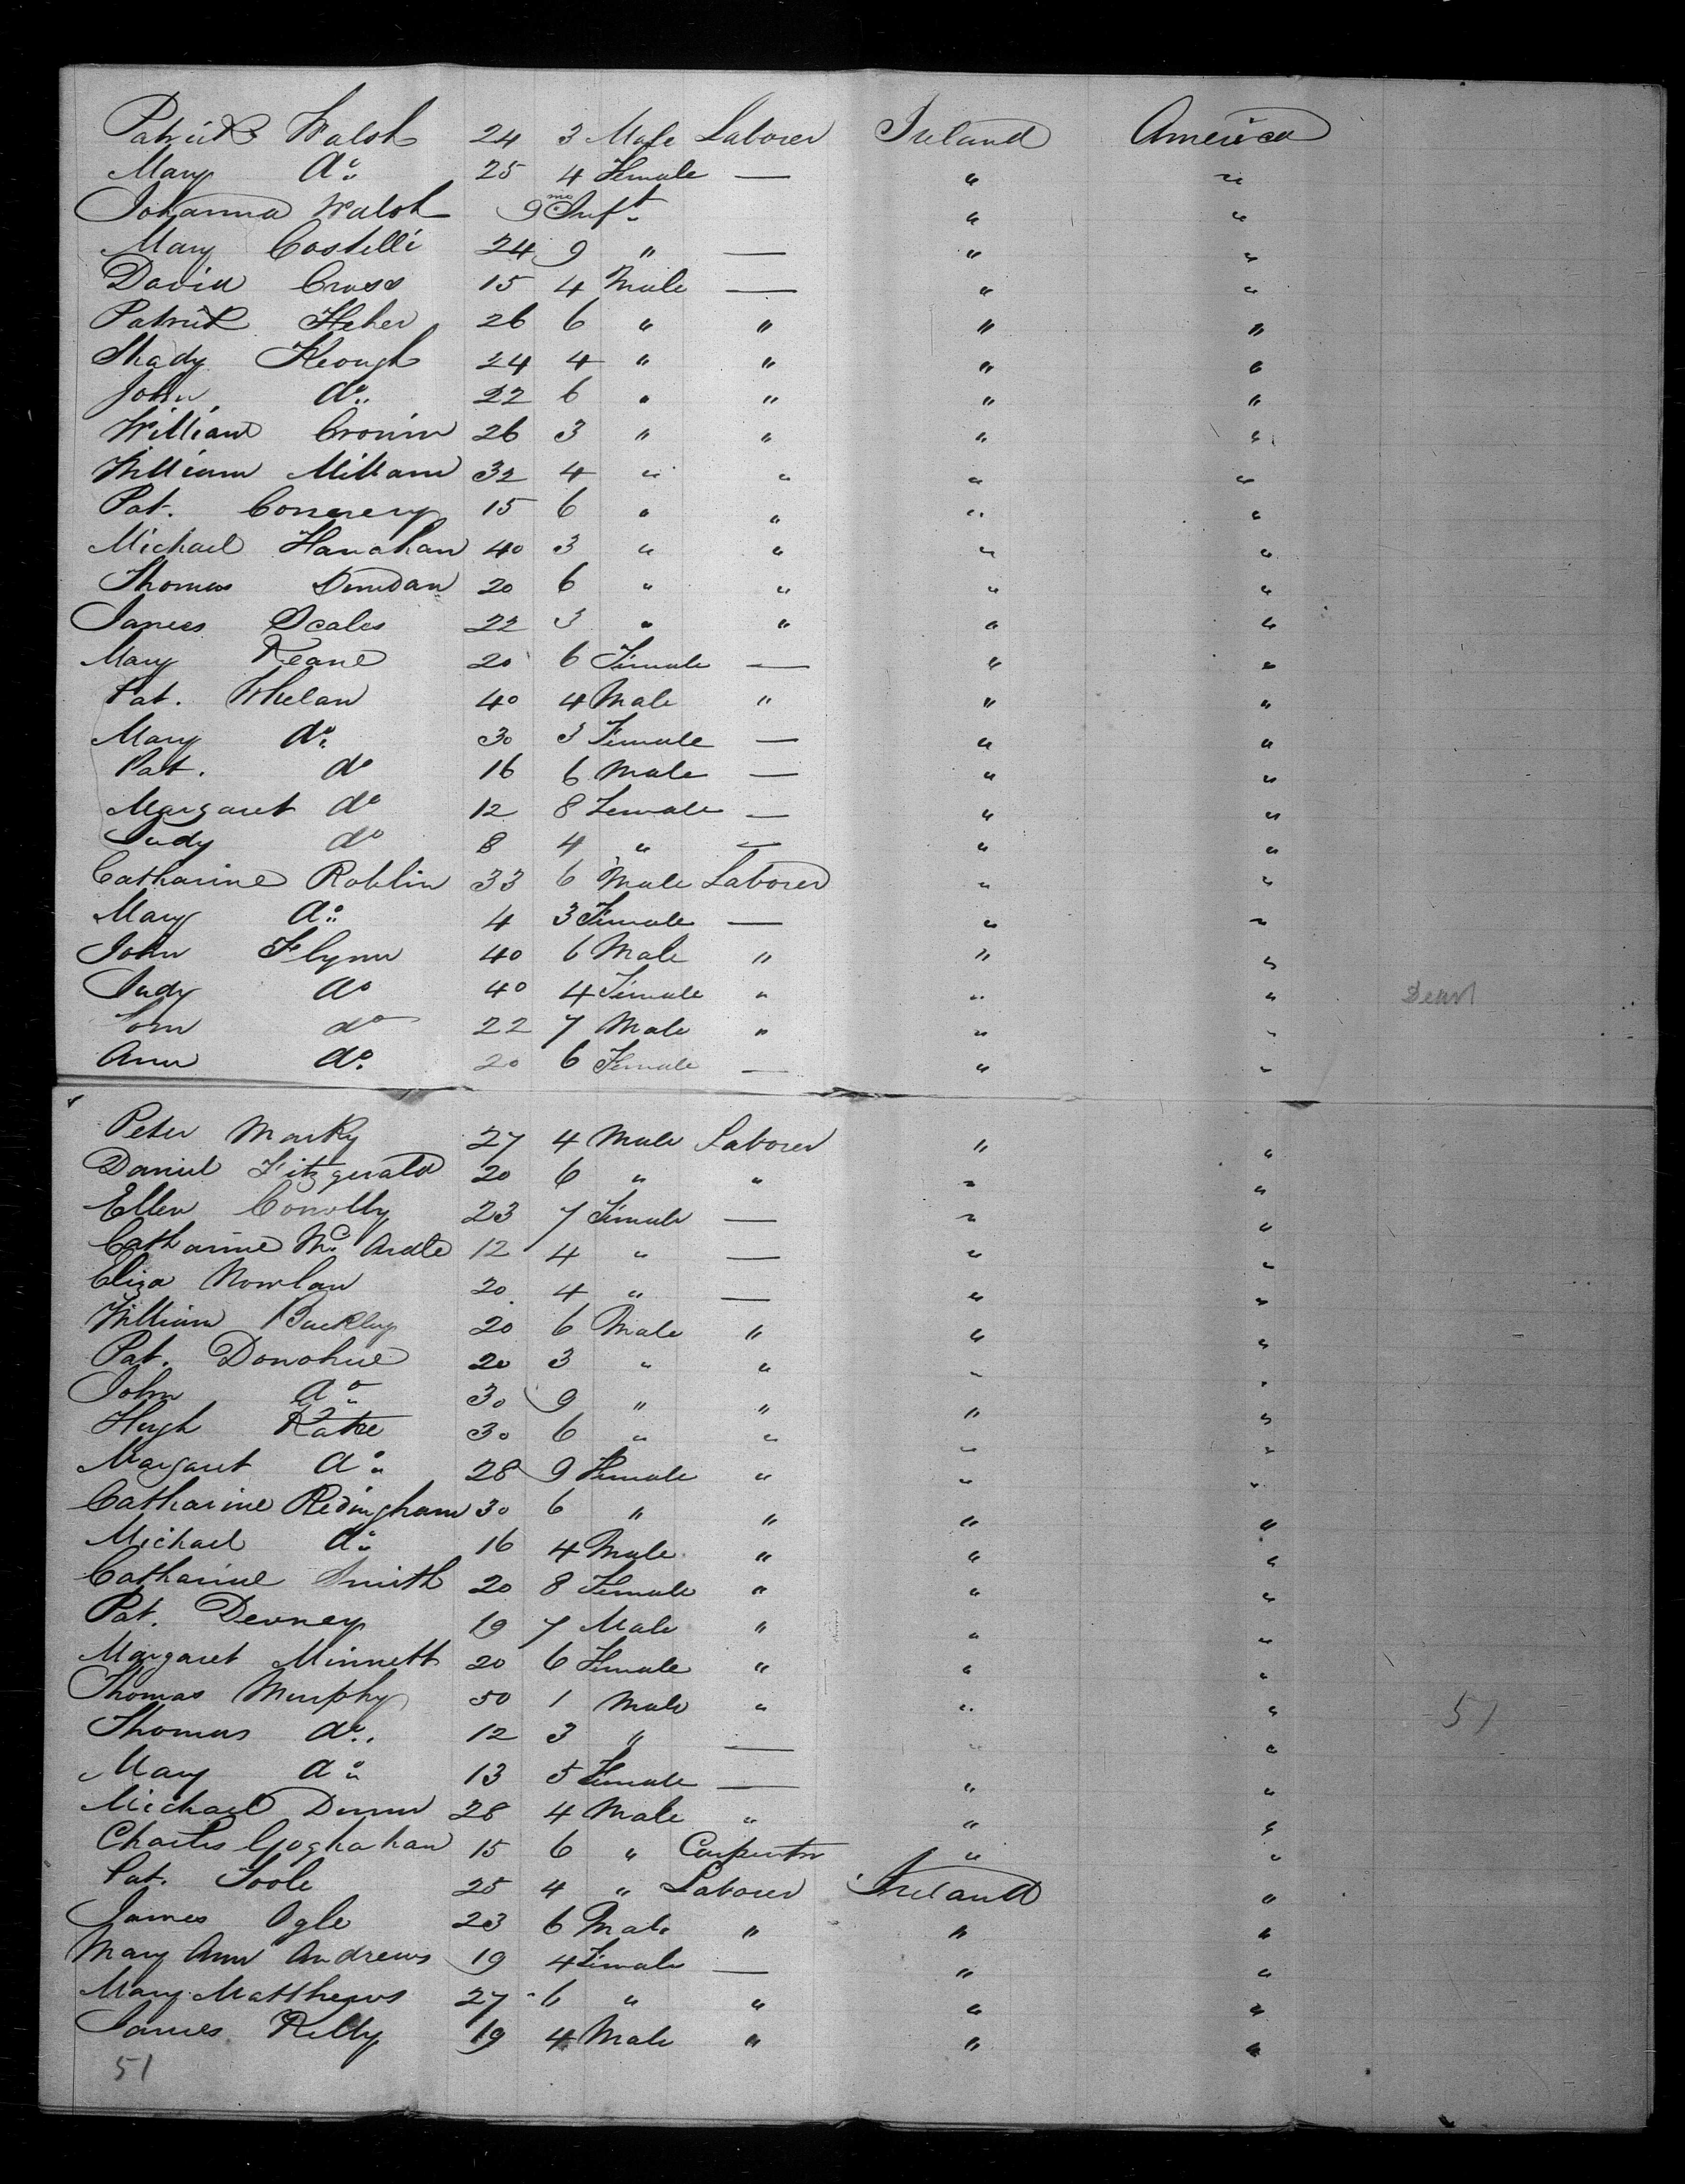 Patrick Walsh 24 3 Male Laborer Ireland America
Mary do 25 4 Female — " "
Johanna Walsh 9 mo Inft " "
Mary Costelli 24 9 " — " "
David Cross 15 4 Male — " "
Patrick Heher 26 6 " " " "
Thady Keough 24 4 " " " "
John do 22 6 " " " "
William Cronin 26 3 " " " "
William Millane 32 4 " " " "
Pat. Connery 15 6 " " " "
Michael Hanahan 40 3 " " " "
Thomas Dundan 20 6 " " " "
James Scales 22 3 " " " "
Mary Keane 20 6 Female — " "
Pat. Whelan 40 4 Male " " "
Mary do 30 3 Female — " "
Pat. do 16 6 Male — " "
Margaret do 12 8 Female — " "
Judy do 8 4 " — " "
Catharine Roblin 33 6 Male Laborer " "
Mary do 4 3 Female — " "
John Flynn 40 6 Male " " "
Judy do 40 4 Female " " "
Tom do 22 7 Male " " "
Ann do 20 6 Female — " "
Peter Marky 27 4 Male Laborer " "
Daniel Fitzgerald 20 6 " " " "
Ellen Conolly 23 7 Female — " "
Catharine McArdle 12 4 " — " "
Eliza Nowlan 20 4 " — " "
William Buckley 20 6 Male " " "
Pat. Donohue 20 3 " " " "
John do 30 9 " " " "
Hugh 30 6 " " " "
Margaret do 28 9 Female " " "
Catharine Redingham 30 6 " " " "
Michael do 16 4 Male " " "
Catharine Smith 20 8 Female " " "
Pat. Devney 19 7 Male " " "
Margaret Minnett 20 6 Female " " "
Thomas Murphy 50 1 Male " " " 51
Thomas do 12 3 " — " "
Mary do 13 5 Female — " "
Michael Dunn 28 4 Male " " "
Charles Goghahan 15 6 " Carpenter " "
Pat. Toole 25 4 " Laborer Ireland "
James Ogle 23 6 Male " " "
Mary Ann Andrews 19 4 Female — " "
Mary Matthews 27 6 " " " "
James Reilly 19 4 Male " " "
51